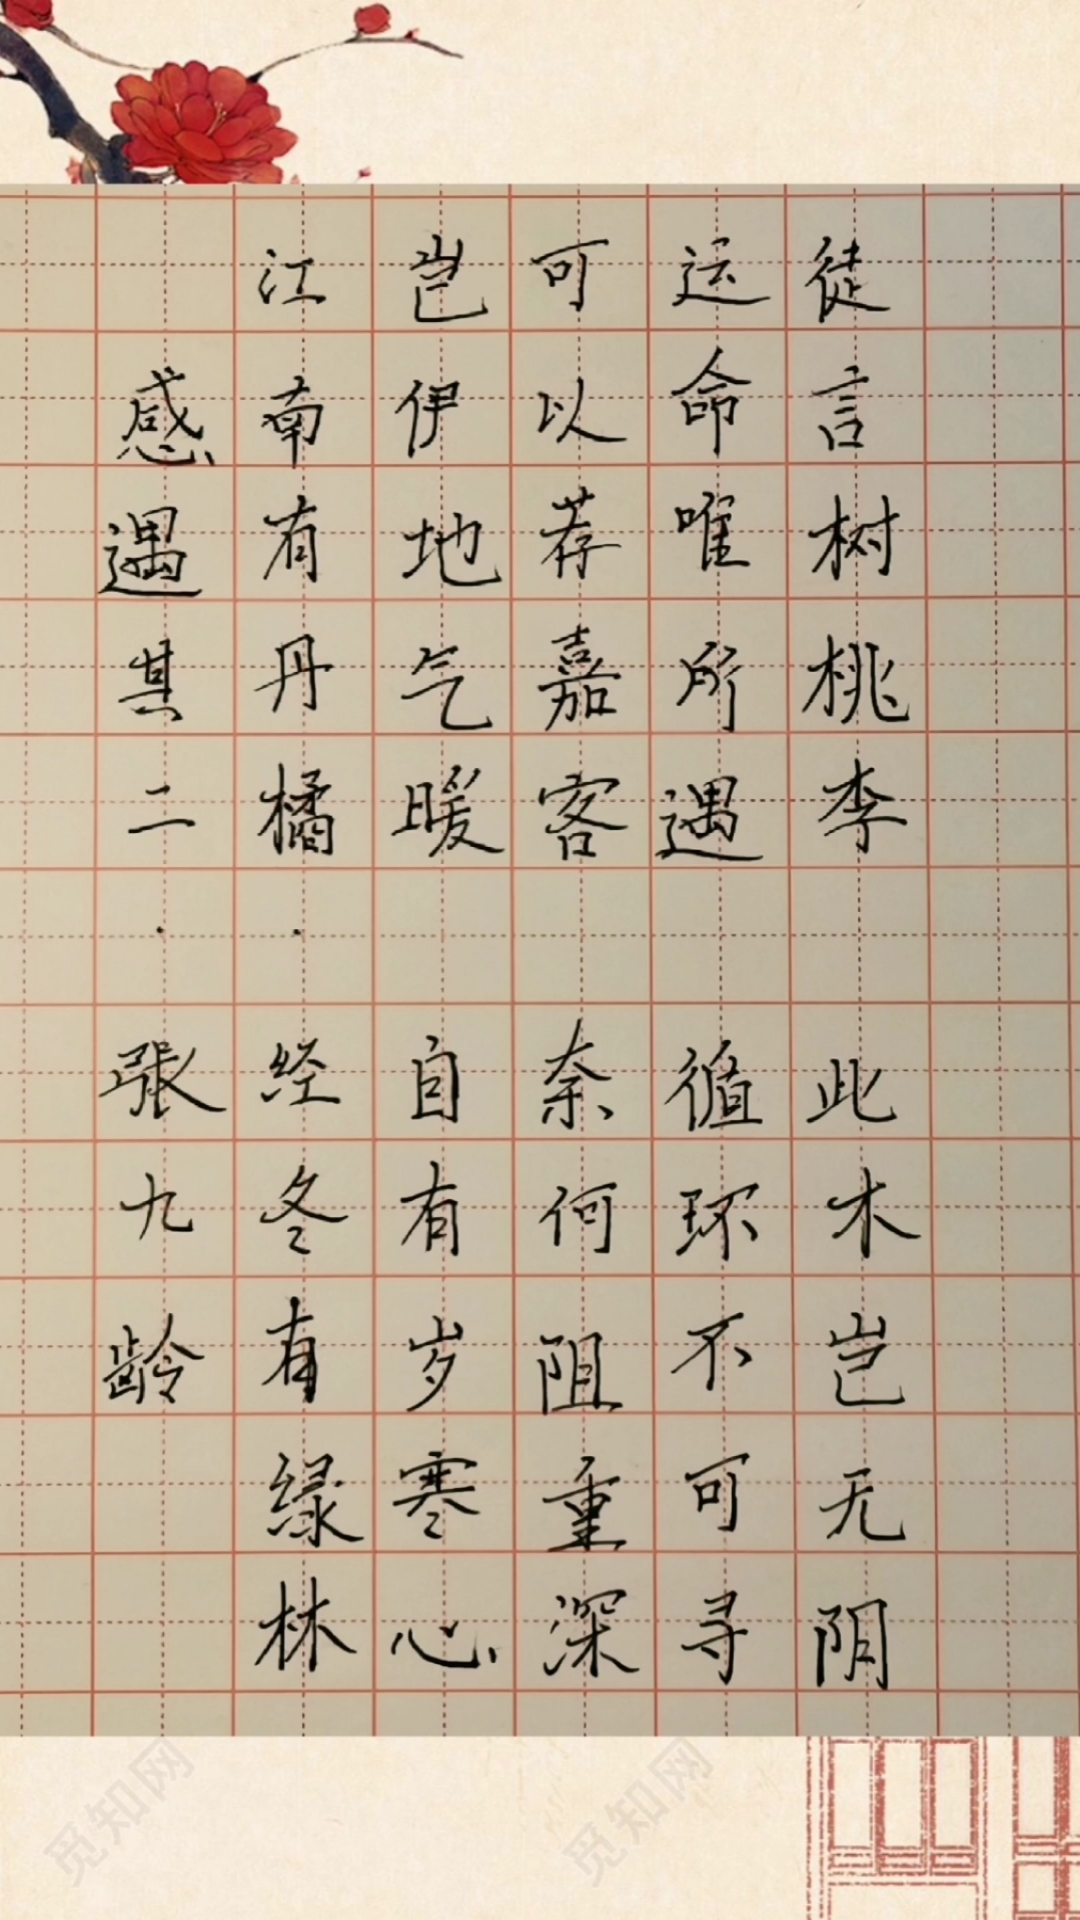 感遇其二·張九龄
江南有丹橘·经冬有绿林
岂伊地气暖 自有岁寒心
可以荐嘉客 奈何阻重深
运命唯所遇 循环不可寻
徒言树桃李 此木岂无阴
觅知网
觅知网